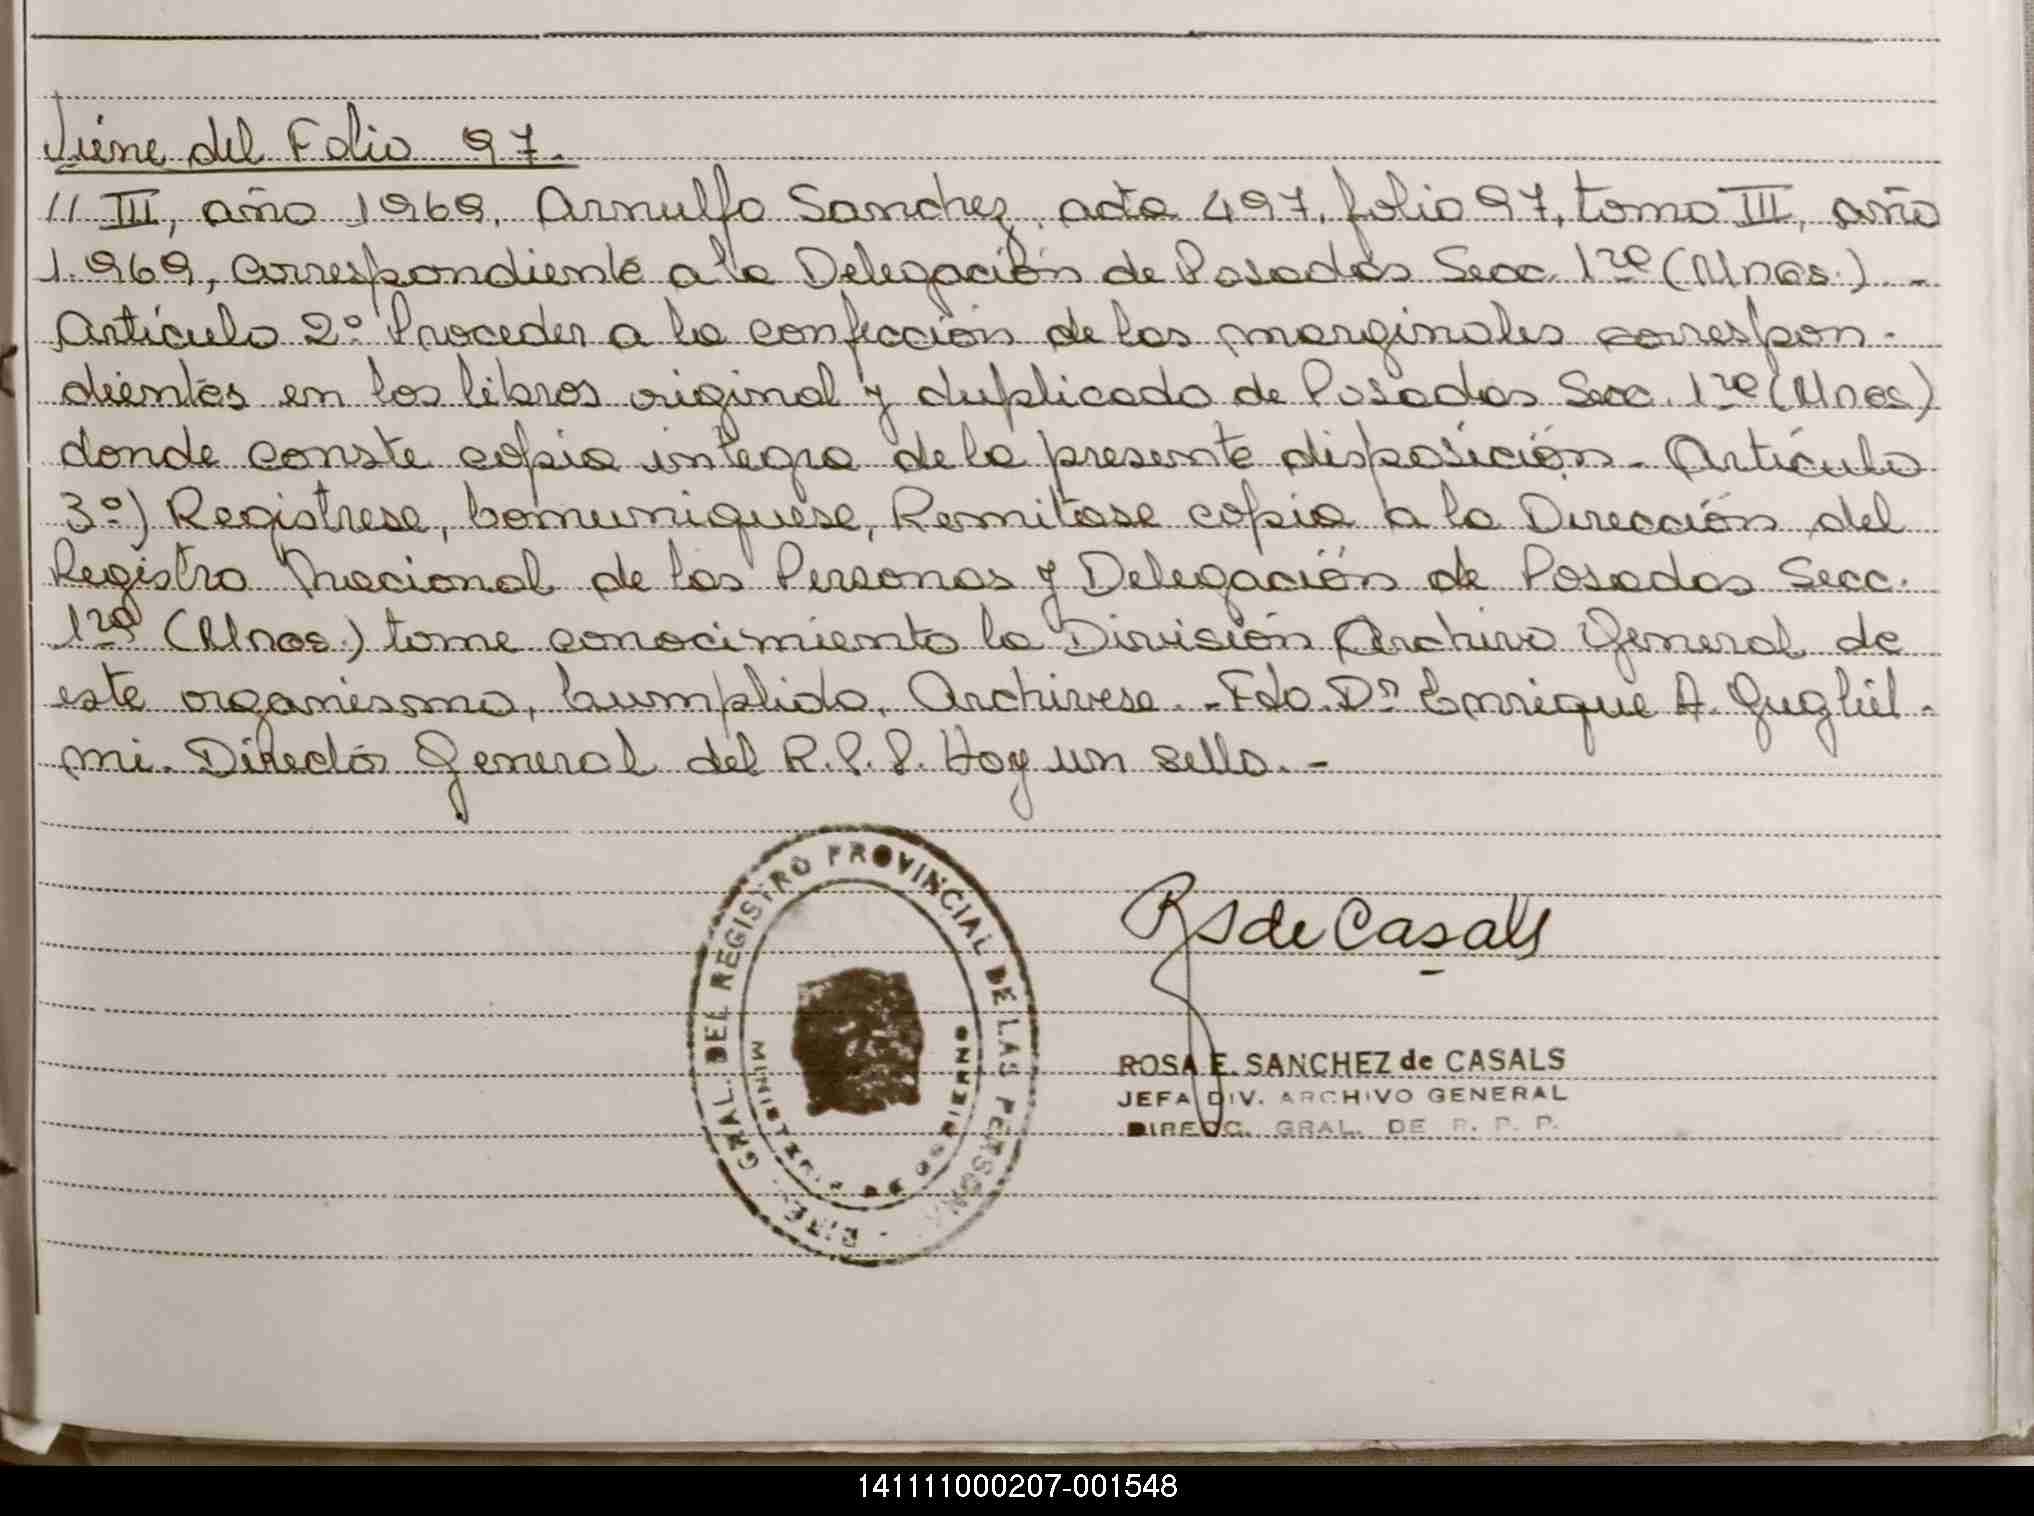 Viene del Folio 97.
// III, año 1969, Arnulfo Sanchez, acta 497, folio 97, tomo III, año
1.969, correspondiente a la Delegación de Posadas Secc. 1ra (Mnes.).-
Artículo 2º Proceder a la confección de las marginales correspon-
dientes en los libros original y duplicado de Posadas Secc. 1ra (Mnes)
donde conste copia integra de la presente disposición. Artículo
3º) Registrese, Comuniquese, Remitase copia a la Dirección del
Registro Nacional de las Personas y Delegación de Posadas Secc.
1ra (Mnes.) tome conocimiento la División Archivo General de
este organismo, Cumplido, Archivese.- Fdo. Dr Enrique A. Gugliel-
mi. Director General del R.P.P. Hay un sello.-
DIREC. GRAL. DEL REGISTRO PROVINCIAL DE LAS PERSONAS
MINISTERIO DE GOBIERNO
RS de Casals
ROSA E. SANCHEZ de CASALS
JEFA DIV. ARCHIVO GENERAL
DIRECC. GRAL. DE R. P. P.
141111000207-001548